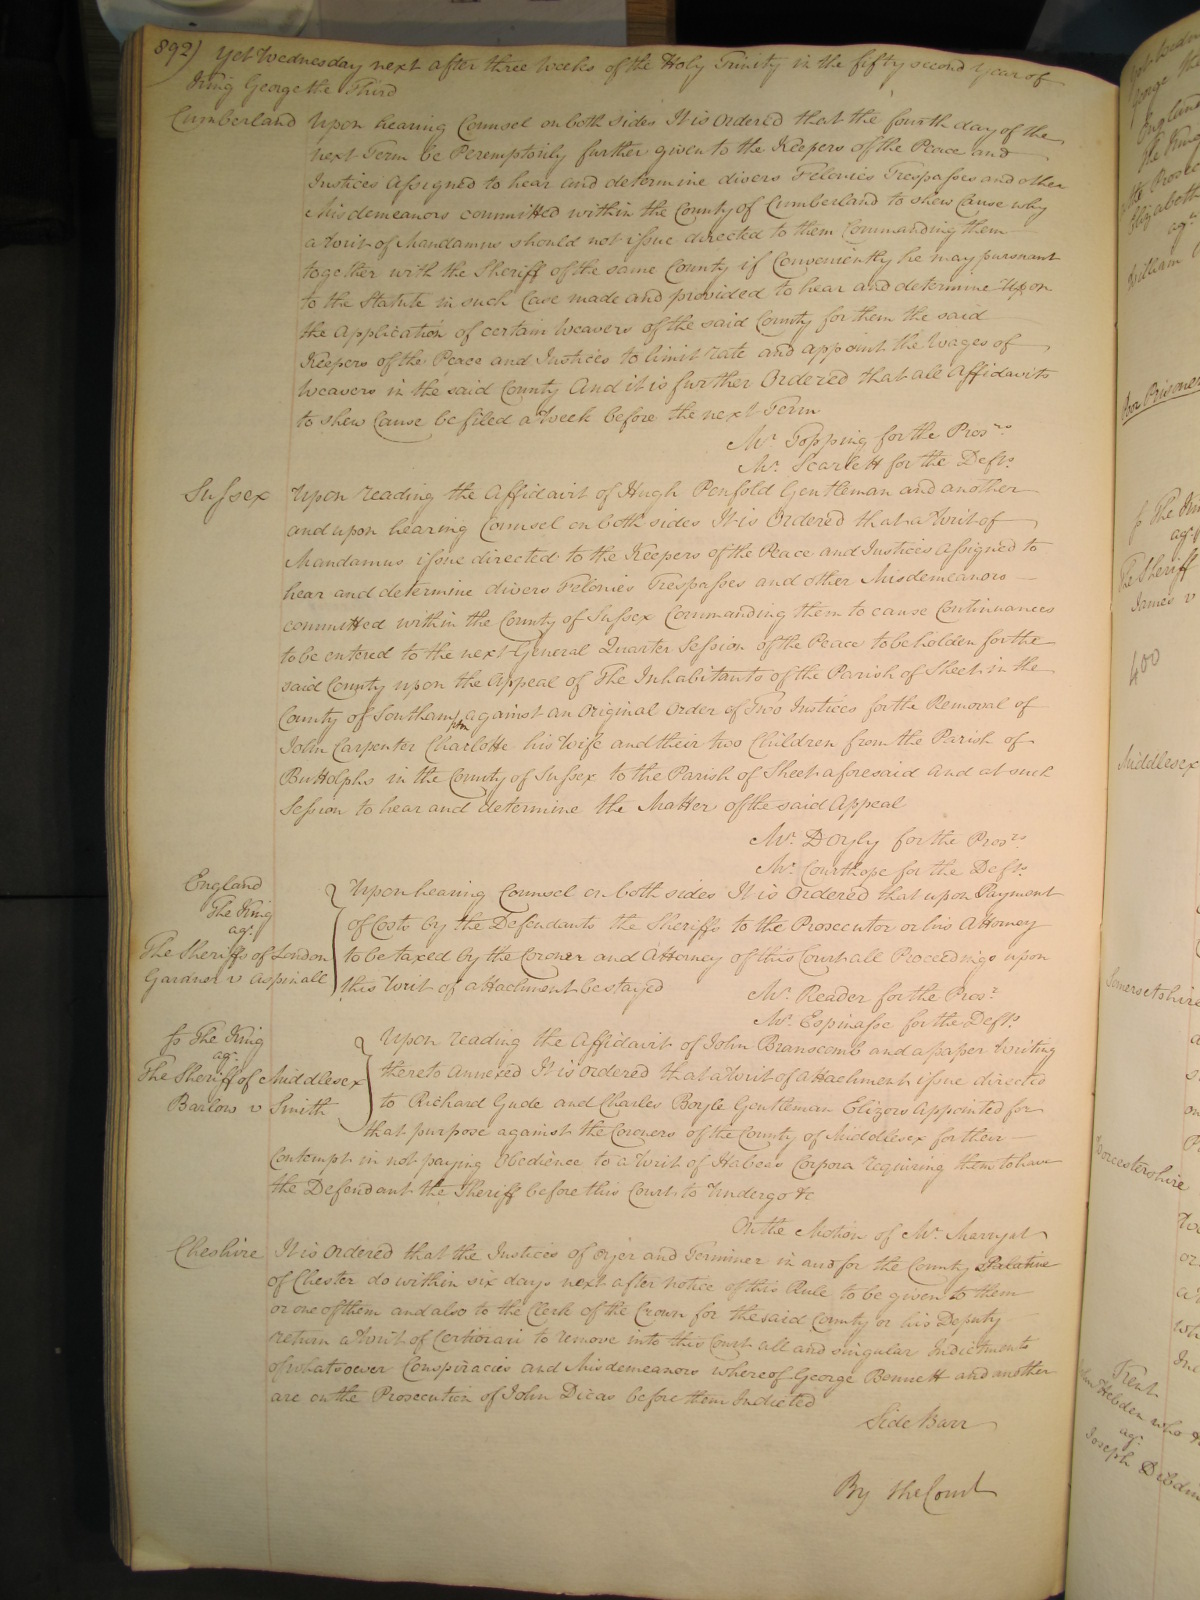 892) Yet Wednesday next after three Weeks of the Holy Trinity in the fifty second Year of
King George the Third
Cumberland Upon hearing Counsel on both sides It is Ordered that the fourth day of the
next Term be Peremptorily further given to the Keepers of the Peace and
Justices Assigned to hear and determine divers Felonies Trespasses and other
Misdemeanors committed within the County of Cumberland to shew Cause why
a Writ of Mandamus should not issue directed to them Commanding them
together with the Sheriff of the same County if Conveniently he may pursuant
to the Statute in such Case made and provided to hear and determine Upon
the Application of certain Weavers of the said County for them the said
Keepers of the Peace and Justices to limit rate and appoint the Wages of
Weavers in the said County And it is further Ordered that all Affidavits
to shew Cause be filed a Week before the next Term
Mr. Topping for the Prosrs.
Mr. Scarlett for the Defts.
Sussex Upon reading the Affidavit of Hugh Penfold Gentleman and another
and upon hearing Counsel on both sides It is Ordered that a Writ of
Mandamus issue directed to the Keepers of the Peace and Justices Assigned to
hear and determine divers Felonies Trespasses and other Misdemeanors
committed within the County of Sussex Commanding them to cause Continuances
to be entered to the next General Quarter Session of the Peace to be holden for the
said County upon the Appeal of The Inhabitants of the Parish of Sheet in the
County of Southampton against an Original Order of Two Justices for the Removal of
John Carpenter Charlotte his Wife and their two Children from the Parish of
Buttolphs in the County of Sussex to the Parish of Sheet aforesaid And at such
Session to hear and determine the Matter of the said Appeal
Mr. Doyly for the Prosrs.
Mr. Courthope for the Defts.
England
The King
agt.
The Sheriffs of London
Gardner v Aspinall
Upon hearing Counsel on both sides It is Ordered that upon Payment
of Costs by the Defendants the Sheriffs to the Prosecutor or his Attorney
to be taxed by the Coroner and Attorney of this Court all Proceedings upon
this Writ of Attachment be stayed
Mr. Reader for the Prosr.
Mr. Espinasse for the Defts.
fo The King
agt.
The Sheriff of Middlesex
Barlow v Smith
Upon reading the Affidavit of John Branscomb and a paper Writing
thereto Annexed It is Ordered that a Writ of Attachment issue directed
to Richard Gude and Charles Boyle Gentleman Elizors Appointed for
that purpose against the Coroners of the County of Middlesex for their
Contempt in not paying Obedience to a Writ of Habeas Corpora requiring them to have
the Defendant the Sheriff before this Court to Undergo &c
On the Motion of Mr. Marryat
Cheshire It is Ordered that the Justices of Oyer and Terminer in and for the County Palatine
of Chester do within six days next after notice of this Rule to be given to them
or one of them and also to the Clerk of the Crown for the said County or his Deputy
return a Writ of Certiorari to remove into this Court all and singular Indictments
of whatsoever Conspiracies and Misdemeanors whereof George Bennett and another
are on the Prosecution of John Dicas before them Indicted
Side Barr
By the Court
England
Poor Prisoner
fo The King
agt.
The Sheriff
James v
400
Middlesex
Somersetshire
Worcestershire
Kent
Hebden who
agt.
Joseph